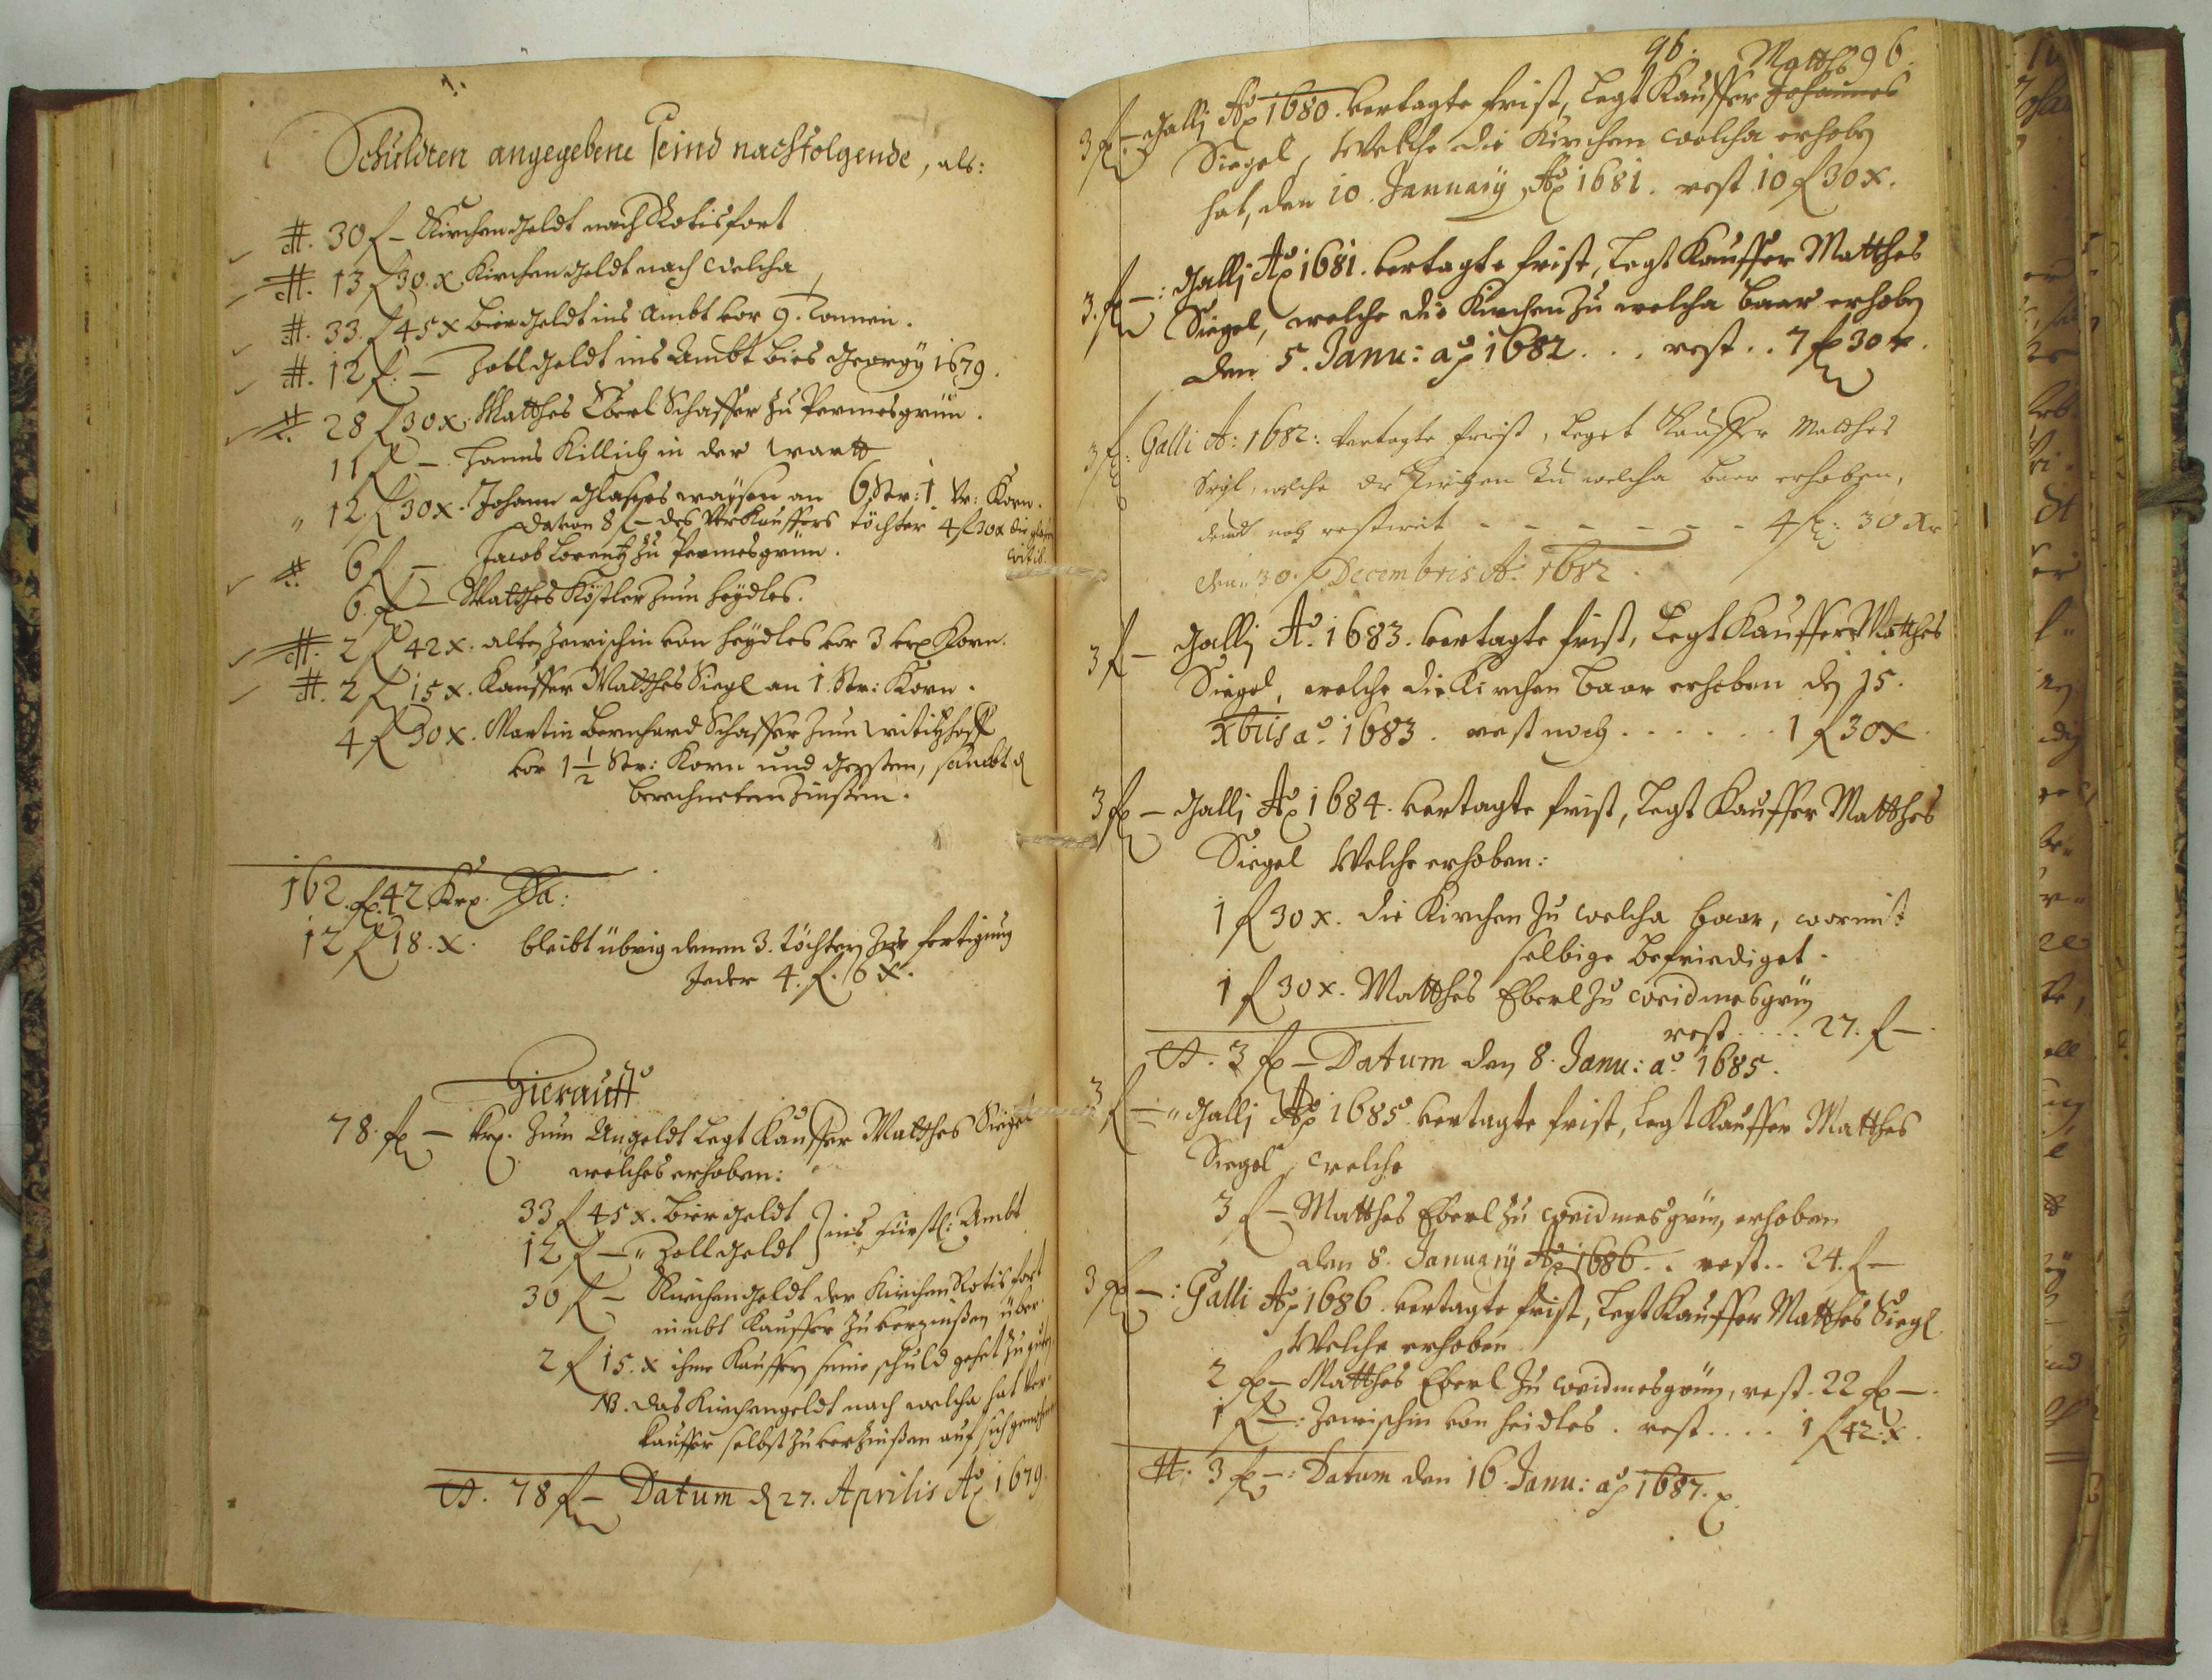 Schuldten angegebene seind nachfolgende, als:
#. 30 f – Kirchengeldt nach Rotisfort
#. 13 f 30. x. Kirchengeldt nach Welcha
#. 33. f 45 x Biergeldt ins Ambt vor 9. Tonnen.
#. 12 f. – Zollgeldt ins Ambt bies Georgy 1679.
#. 28 f 30 x. Matthes Eberl Schaffer zu Permesgrün.
11 f – Hanns Killich in der Wartt
" 12 f 30 x. Johann Glasers waysen an 6 Str: 1 Vr: Korn.
davon 8 f – des Verkauffers töchter 4 f 30 x die
#. 6 f – Jacob Lorentz zu Permesgrün.
6. f – Matthes Köstler zum Heydles.
#. 2 f 42 x. alten Zewischin von Heydles vor 3 Korn.
#. 2 f 15 x. Kauffer Matthes Siegl an 1. Str: Korn.
4 f 30 x. Martin Bernhard Schaffer zum
vor 1 1/2 Str: Korn und Gersten, sambt
berechneten Zinßen.
162. f. 42 Krx. Sa:
12 f 18. x. bleibt übrig denen 3. töchtern zur fertigung
Jeder 4. f. 6 x.
Hierauff
78. f – krx. zum Angeldt legt Kauffer Matthes Siegel
welches erhoben:
33 f 45 x. Biergeldt
12 f – " Zollgeldt } ins fürstl: Ambt
30 f – Kirchengeldt der Kirchen Rotisfort
nimbt Kauffer zu verzinßen über.
2 f 15. x ihme Kauffern seine schuld gehet zu guten
NB. das Kirchengeldt nach Welcha hat Ver-
kauffer selbst zu verzinßen auf sich genohmen
S. 78 f – Datum d 27. Aprilis Ao 1679.
96. 96.
Matths
3 f – Galli Ao 1680. vertagte frist, legt Kauffer Johannes
Siegel, Welche die Kirchen Welcha erhoben
hat, den 10. January Ao 1681. rest 10 f 30 x.
3. f –: Galli Ao 1681. vertagte frist, legt Kauffer Matthes
Siegel, welche die Kirchen zu Welcha baar erhoben
den 5. Janu: ao 1682. . . rest . . 7 f 30 x.
3 f: Galli A: 1682: Vertagte frist, leget Kauffer Matthes
Sigl, welche die Kirchen zu Welcha baar erhoben,
noch restirent – – – – – – 4 f: 30 xr
den 30. Decembris A: 1682.
3 f – Galli Ao. 1683. vertagte frist, legt Kauffer Matthes
Siegel, welche die Kirchen baar erhoben den 15.
xbris ao. 1683. rest noch . . . . . . 1 f 30 x.
3 f – Galli Ao 1684. vertagte frist, legt Kauffer Matthes
Siegel Welche erhoben:
1 f 30 x. die Kirchen zu Welcha baar, wormit
selbige befriediget.
1 f 30 x. Matthes Eberl zu Weidmesgrün
rest . . . . 27. f –.
S. 3 f – Datum den 8. Janu: ao. 1685.
3 f – " Galli Ao 1685. vertagte frist, legt Kauffer Matthes
Siegel, Welche
3 f – Matthes Eberl zu Weidmesgrün, erhoben
den 8. January Ao 1686. . rest . . 24. f –
3 f –: Galli Ao 1686. vertagte frist, legt Kauffer Matthes Siegl
Welche erhoben
2 f – Matthes Eberl zu Weidmesgrün, rest. 22 f –.
1 f –: Zewischin von Heidles. rest . . . . 1 f 42: x.
#. 3 f –: Datum den 16. Janu: ao 1687.